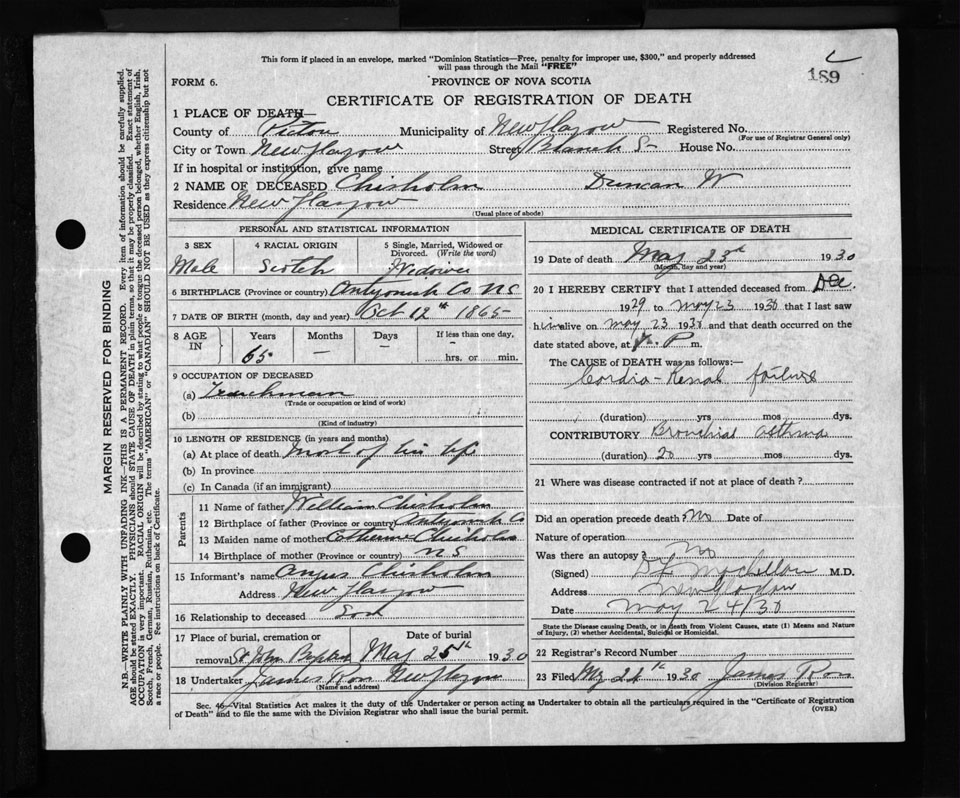 This form if placed in an envelope, marked "Dominion Statistics—Free, penalty for improper use, $300," and properly addressed
will pass through the Mail "FREE"
189
FORM 6.
PROVINCE OF NOVA SCOTIA
CERTIFICATE OF REGISTRATION OF DEATH
1 PLACE OF DEATH—
County of Pictou Municipality of New Glasgow Registered No.
(For use of Registrar General only)
City or Town New Glasgow Street Branch St House No.
If in hospital or institution, give name
2 NAME OF DECEASED Chisholm Duncan W
Residence New Glasgow
(Usual place of abode)
PERSONAL AND STATISTICAL INFORMATION
3 SEX 4 RACIAL ORIGIN 5 Single, Married, Widowed or Divorced. (Write the word)
Male Scotch Widower
6 BIRTHPLACE (Province or country) Antigonish Co NS
7 DATE OF BIRTH (month, day and year) Oct 12th 1865
8 AGE IN Years Months Days If less than one day,
65 — — — hrs. or min.
9 OCCUPATION OF DECEASED
(a)
(Trade or occupation or kind of work)
(b)
(Kind of industry)
10 LENGTH OF RESIDENCE (in years and months)
(a) At place of death Most of his life
(b) In province
(c) In Canada (if an immigrant)
Parents
11 Name of father William Chisholm
12 Birthplace of father (Province or country) Antigonish Co
13 Maiden name of mother Catherine Chisholm
14 Birthplace of mother (Province or country) NS
15 Informant's name Angus Chisholm
Address New Glasgow
16 Relationship to deceased Son
17 Place of burial, cremation or Date of burial
removal St John Baptist May 25th 1930
18 Undertaker James Ross New Glasgow
(Name and address)
MEDICAL CERTIFICATE OF DEATH
19 Date of death May 23rd 1930
(Month, day and year)
20 I HEREBY CERTIFY that I attended deceased from Dec
1929 to May 23 1930 that I last saw
him alive on May 23 1930 and that death occurred on the
date stated above, at P m.
The CAUSE OF DEATH was as follows:—
Cordio-Renal failure
(duration) yrs mos dys.
CONTRIBUTORY Bronchial asthma
(duration) 20 yrs mos dys.
21 Where was disease contracted if not at place of death?
Did an operation precede death? No Date of
Nature of operation
Was there an autopsy? No
(Signed) M.D.
Address New Glasgow
Date May 24/30
State the Disease causing Death, or in death from Violent Causes, state (1) Means and Nature
of Injury, (2) whether Accidental, Suicidal or Homicidal.
22 Registrar's Record Number
23 Filed My 24th 1930 James Ross
(Division Registrar)
Sec. 46—Vital Statistics Act makes it the duty of the Undertaker or person acting as Undertaker to obtain all the particulars required in the "Certificate of Registration
of Death" and to file the same with the Division Registrar who shall issue the burial permit.
(OVER)
MARGIN RESERVED FOR BINDING
N.B.—WRITE PLAINLY WITH UNFADING INK—THIS IS A PERMANENT RECORD. Every item of information should be carefully supplied.
AGE should be stated EXACTLY. PHYSICIANS should STATE CAUSE OF DEATH in plain terms, so that it may be properly classified. Exact statement of
OCCUPATION is very important. RACIAL ORIGIN will be described by stating to what people or tongue the deceased person belonged, whether English, Irish,
Scotch, French, German, Russian, Ruthenian, etc. The terms "AMERICAN" or "CANADIAN" SHOULD NOT BE USED as they express citizenship but not
a race or people. Fee instructions on back of Certificate.